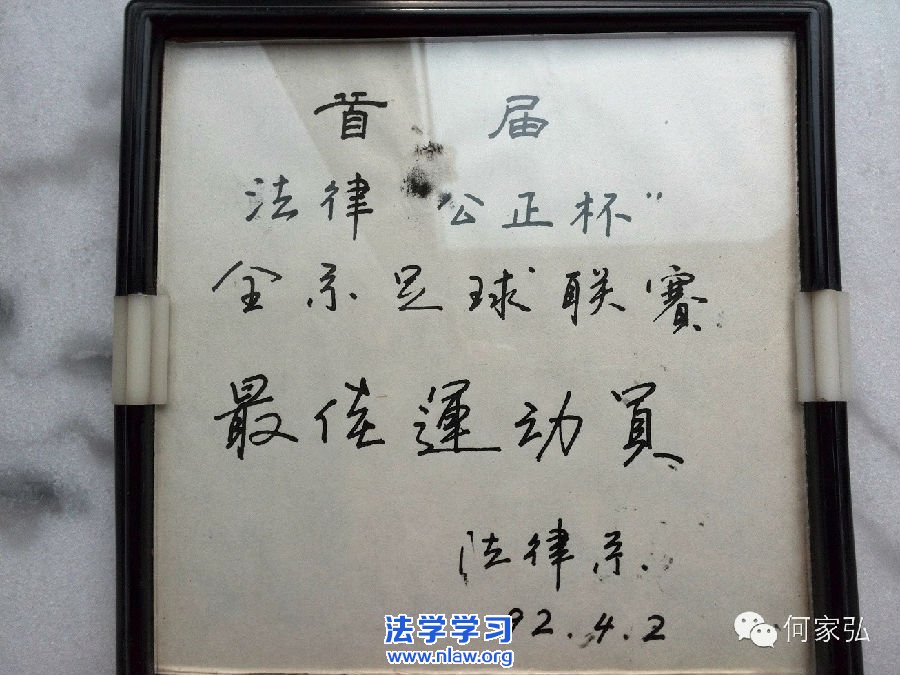 首届
法律"公正杯"
全系足球联賽
最佳運动員
法律系.
92.4.2
法学学习
www.nlaw.org
何家弘